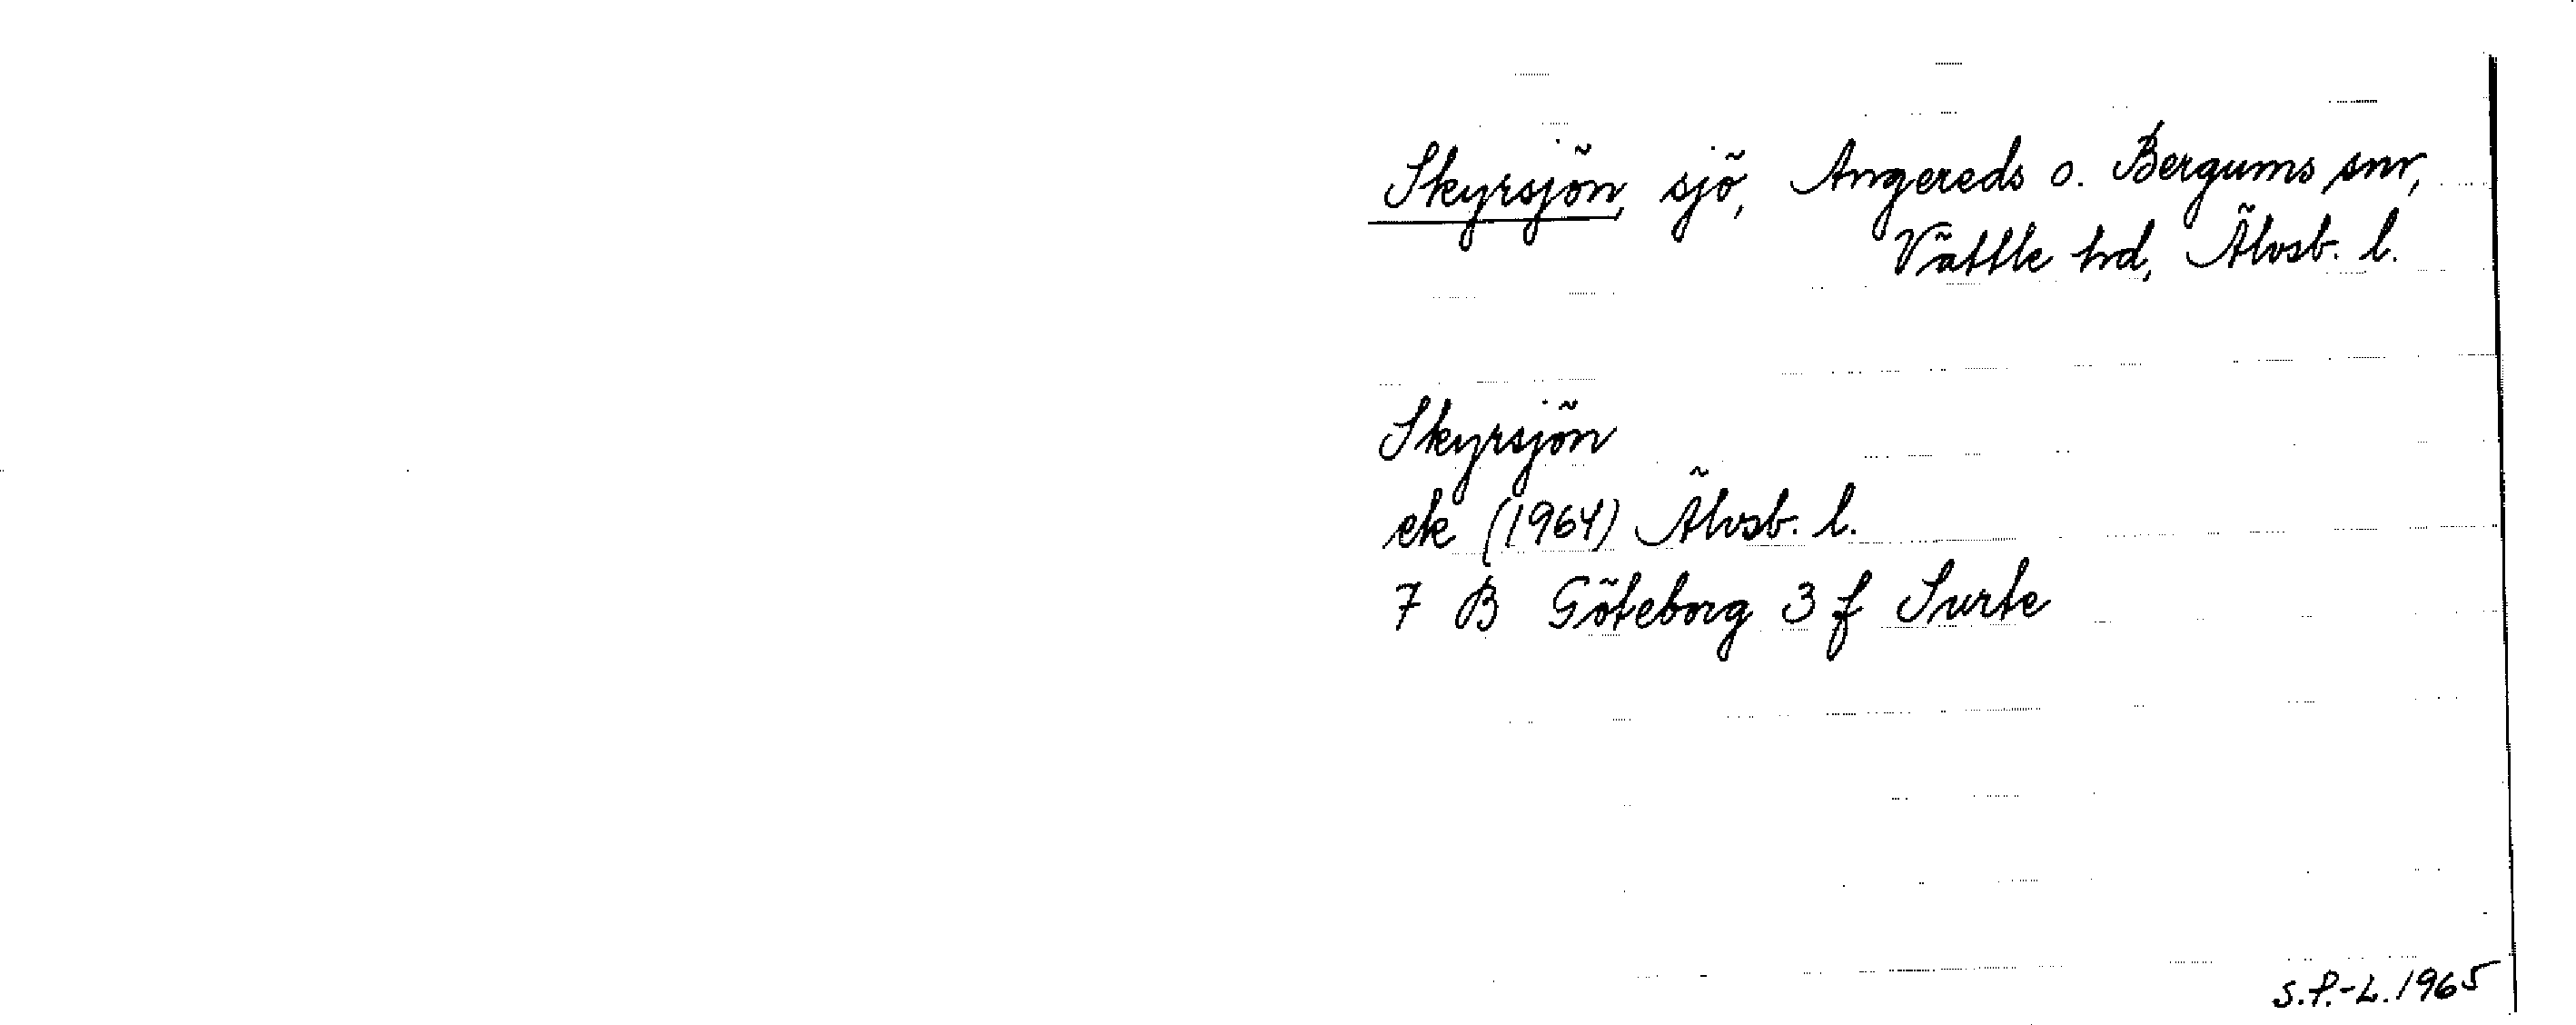 Skyrsjön, sjö, Angereds o. Bergums snr,
Vättle hd, Älvsb. l.
Skyrsjön
ek (1964) Älvsb. l.
7 B Göteborg 3 f Surte
S.P.-L. 1965